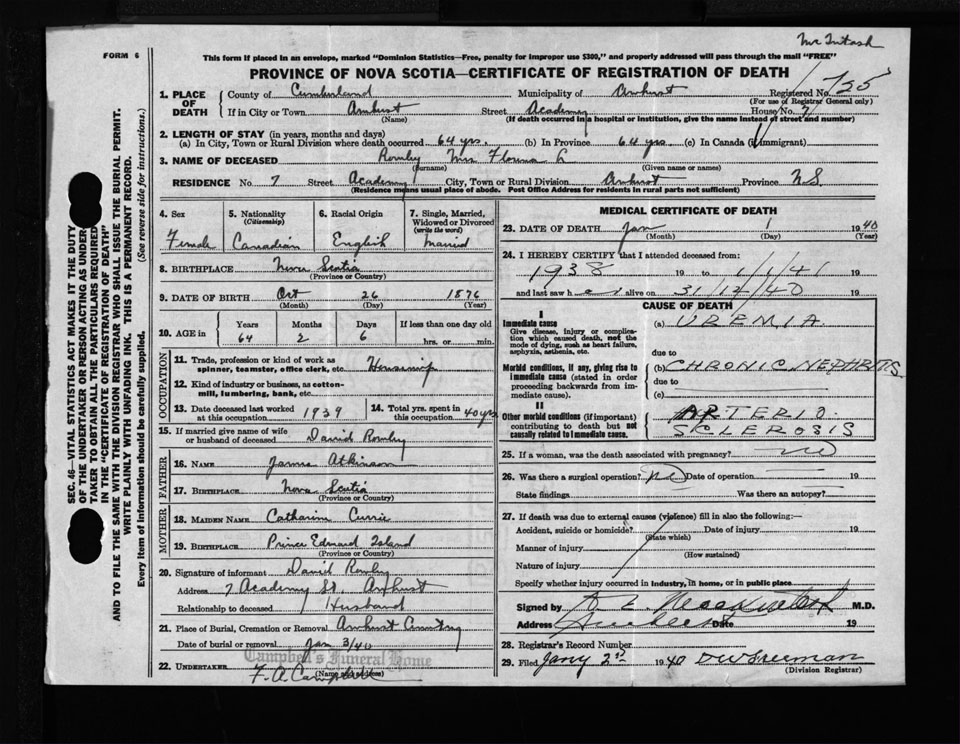 Mc Intosh
FORM 6
This form if placed in an envelope, marked "Dominion Statistics—Free, penalty for improper use $300," and properly addressed will pass through the mail "FREE"
PROVINCE OF NOVA SCOTIA—CERTIFICATE OF REGISTRATION OF DEATH
1. PLACE OF DEATH
County of Cumberland Municipality of Amherst Registered No. 725
(For use of Registrar General only)
If in City or Town Amherst Street Academy House No. 7
(Name) (If death occurred in a hospital or institution, give the name instead of street and number)
2. LENGTH OF STAY (in years, months and days)
(a) In City, Town or Rural Division where death occurred 64 yrs. (b) In Province 64 yrs (c) In Canada (if immigrant)
3. NAME OF DECEASED Mrs
(Surname) (Given name or names)
RESIDENCE No. 7 Street Academy City, Town or Rural Division Amherst Province N.S.
(Residence means usual place of abode. Post Office Address for residents in rural parts not sufficient)
SEC. 46—VITAL STATISTICS ACT MAKES IT THE DUTY
OF THE UNDERTAKER OR PERSON ACTING AS UNDER-
TAKER TO OBTAIN ALL THE PARTICULARS REQUIRED
IN THE "CERTIFICATE OF REGISTRATION OF DEATH"
AND TO FILE THE SAME WITH THE DIVISION REGISTRAR WHO SHALL ISSUE THE BURIAL PERMIT.
WRITE PLAINLY WITH UNFADING INK. THIS IS A PERMANENT RECORD.
Every item of Information should be carefully supplied. (See reverse side for instructions.)
4. Sex Female
5. Nationality (Citizenship) Canadian
6. Racial Origin English
7. Single, Married, Widowed or Divorced (write the word) Married
8. BIRTHPLACE Nova Scotia
(Province or Country)
9. DATE OF BIRTH Oct 26 1876
(Month) (Day) (Year)
10. AGE in Years Months Days If less than one day old
64 2 6 hrs. or min.
OCCUPATION
11. Trade, profession or kind of work as spinner, teamster, office clerk, etc. Housewife
12. Kind of industry or business, as cotton-mill, lumbering, bank, etc.
13. Date deceased last worked at this occupation 1939
14. Total yrs. spent in this occupation 40 yrs
15. If married give name of wife or husband of deceased David
FATHER
16. NAME James Atkinson
17. BIRTHPLACE Nova Scotia
(Province or Country)
MOTHER
18. MAIDEN NAME Catharine Currie
19. BIRTHPLACE Prince Edward Island
(Province or Country)
20. Signature of informant David
Address 7 Academy St. Amherst
Relationship to deceased Husband
21. Place of Burial, Cremation or Removal Amherst Cemetery
Date of burial or removal Jan 3/40
Campbell's Funeral Home
22. UNDERTAKER F. A. Campbell
(Name and address)
MEDICAL CERTIFICATE OF DEATH
23. DATE OF DEATH Jan 1 1940
(Month) (Day) (Year)
24. I HEREBY CERTIFY that I attended deceased from:
1938 19 to 1/1/41 19
and last saw her alive on 31/12/40 19
CAUSE OF DEATH
I
Immediate cause
Give disease, injury or complication which caused death, not the mode of dying, such as heart failure, asphyxia, asthenia, etc.
(a) UREMIA
due to
Morbid conditions, if any, giving rise to immediate cause (stated in order proceeding backwards from immediate cause).
(b) CHRONIC NEPHRITIS
due to
(c)
II
Other morbid conditions (if important) contributing to death but not causally related to immediate cause.
ARTERIO
SCLEROSIS
25. If a woman, was the death associated with pregnancy? no
26. Was there a surgical operation? no Date of operation 19
State findings Was there an autopsy?
27. If death was due to external causes (violence) fill in also the following:—
Accident, suicide or homicide? Date of injury 19
(State which)
Manner of injury
(How sustained)
Nature of injury
Specify whether injury occurred in industry, in home, or in public place
Signed by M.D.
Address Amherst Date 19
28. Registrar's Record Number
29. Filed Jany 2nd 1940 DW Freeman
(Division Registrar)